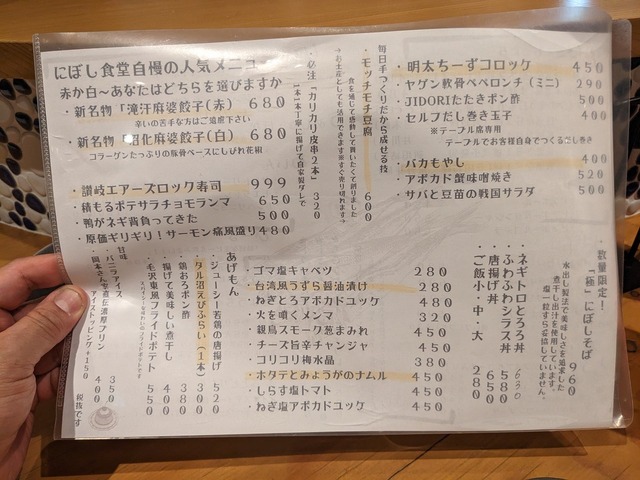 にぼし食堂自慢の人気メニュー
赤か白～あなたはどちらを選びますか
・新名物「滝汗麻婆餃子(赤) 680
辛いの苦手な方はご遠慮下さい
・新名物「沼化麻婆餃子(白) 680
コラーゲンたっぷりの豚骨ベースにしびれ花椒
・讃岐エアーズロック寿司 999
・積もるポテサラチョモランマ 650
・鴨がネギ背負ってきた 500
・原価ギリギリ！サーモン痛風盛り 480
・必注「カリカリ皮串2本」 320
【1本1本丁寧に揚げて自家製ダレで
毎日手づくりだから成せる技
・モッチモチ豆腐 600
→お土産としても活用できます※すぐ売り切れます→
・明太ちーずコロッケ 450
・ヤゲン軟骨ペペロンチ(ミニ) 290
・JIDORIたたきポン酢 500
・セルフだし巻き玉子 400
※テーブル席専用
テーブルでお客様自身でつくるだし巻き
・バカもやし 400
・アボカド蟹味噌焼き 520
・サバと豆苗の戦国サラダ 500
数量限定！
「極」にぼしそば 960
水出し製法で美味しさを追求した
煮干し出汁を使用しています。
塩一粒すら妥協していません。
・ネギトロとろろ丼 630
・ふわふわシラス丼 580
・唐揚げ丼 650
・ご飯小・中・大 280
・ゴマ塩キャベツ 280
・台湾風うずら醤油漬け 280
・ねぎとろアボカドユッケ 480
・火を噴くメンマ 320
・親鳥スモーク葱まみれ 450
・チーズ旨辛チャンジャ 450
・コリコリ梅水晶 380
・ホタテとみょうがのナムル 450
・しらす塩トマト 450
・ねぎ塩アボカドユッケ 450
あげもん
・ジューシー若鶏の唐揚げ 520
・タル沼えびふらい(1本) 300
・鶏おろポン酢 380
・揚げて美味しい煮干し 400
・毛沢東風フライドポテト 550
甘味
・バニラアイス 350
・岡本さん家直伝濃厚プリン 400
アイストッピング+150
税抜です